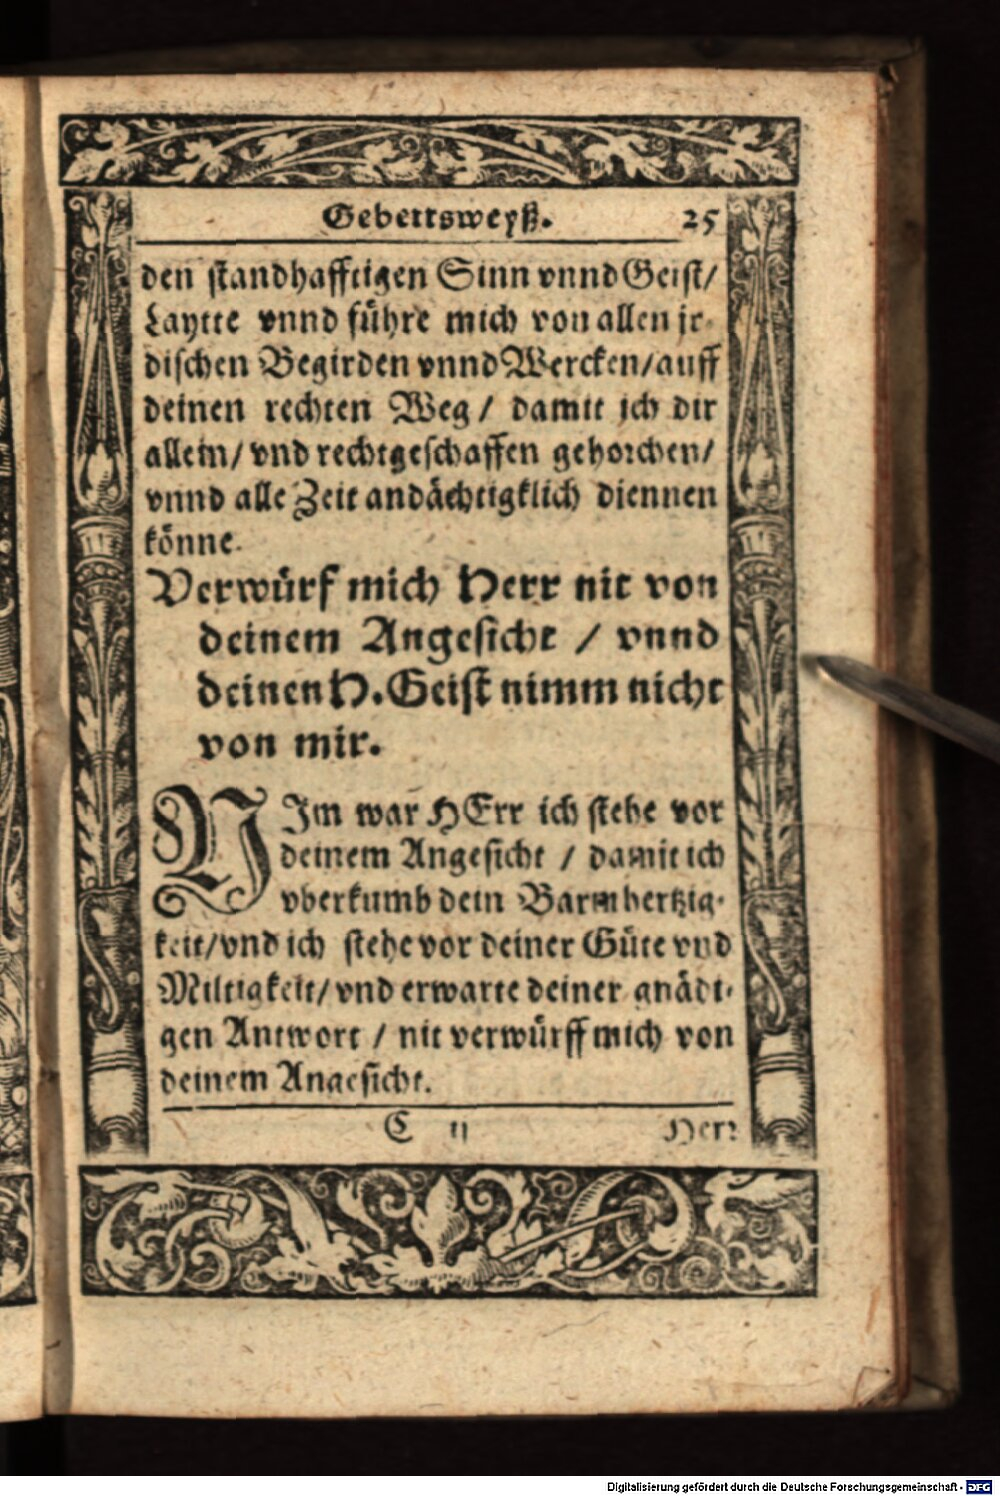 Gebettsweyß. 25
den standhafftigen Sinn vnnd Geist/
Laytte vnnd führe mich von allen jr-
dischen Begirden vnnd Wercken/auff
deinen rechten Weg/ damit jch dir
allein/ vnd rechtgeschaffen gehorchen/
vnnd alle Zeit andächtigklich diennen
könne.
Verwürf mich Herr nit von
deinem Angesicht / vnnd
deinen H. Geist nimm nicht
von mir.
NIm war HErr ich stehe vor
deinem Angesicht / damit ich
vberkumb dein Barmhertzig-
keit/vnd ich stehe vor deiner Güte vnd
Miltigkeit/ vnd erwarte deiner gnädi-
gen Antwort / nit verwürff mich von
deinem Angesicht.
C ij Herr
Digitalisierung gefördert durch die Deutsche Forschungsgemeinschaft - DFG